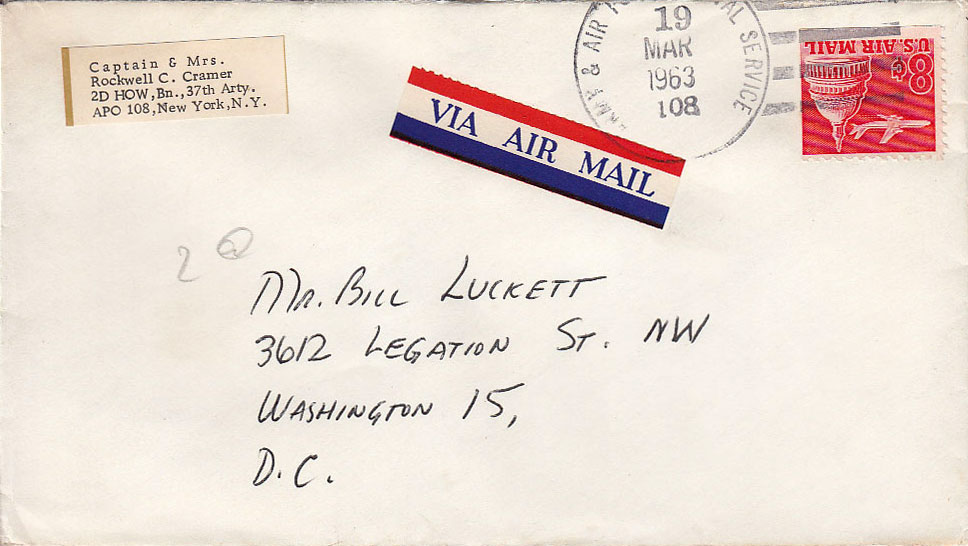 Captain & Mrs.
Rockwell C. Cramer
2D HOW,Bn.,37th Arty.
APO 108,New York,N.Y.
VIA AIR MAIL
ARMY & AIR AL SERVICE
19
MAR
1963
108
U.S. AIR MAIL
8¢
2
Mr. Bill Luckett
3612 Legation St. NW
Washington 15,
D.C.